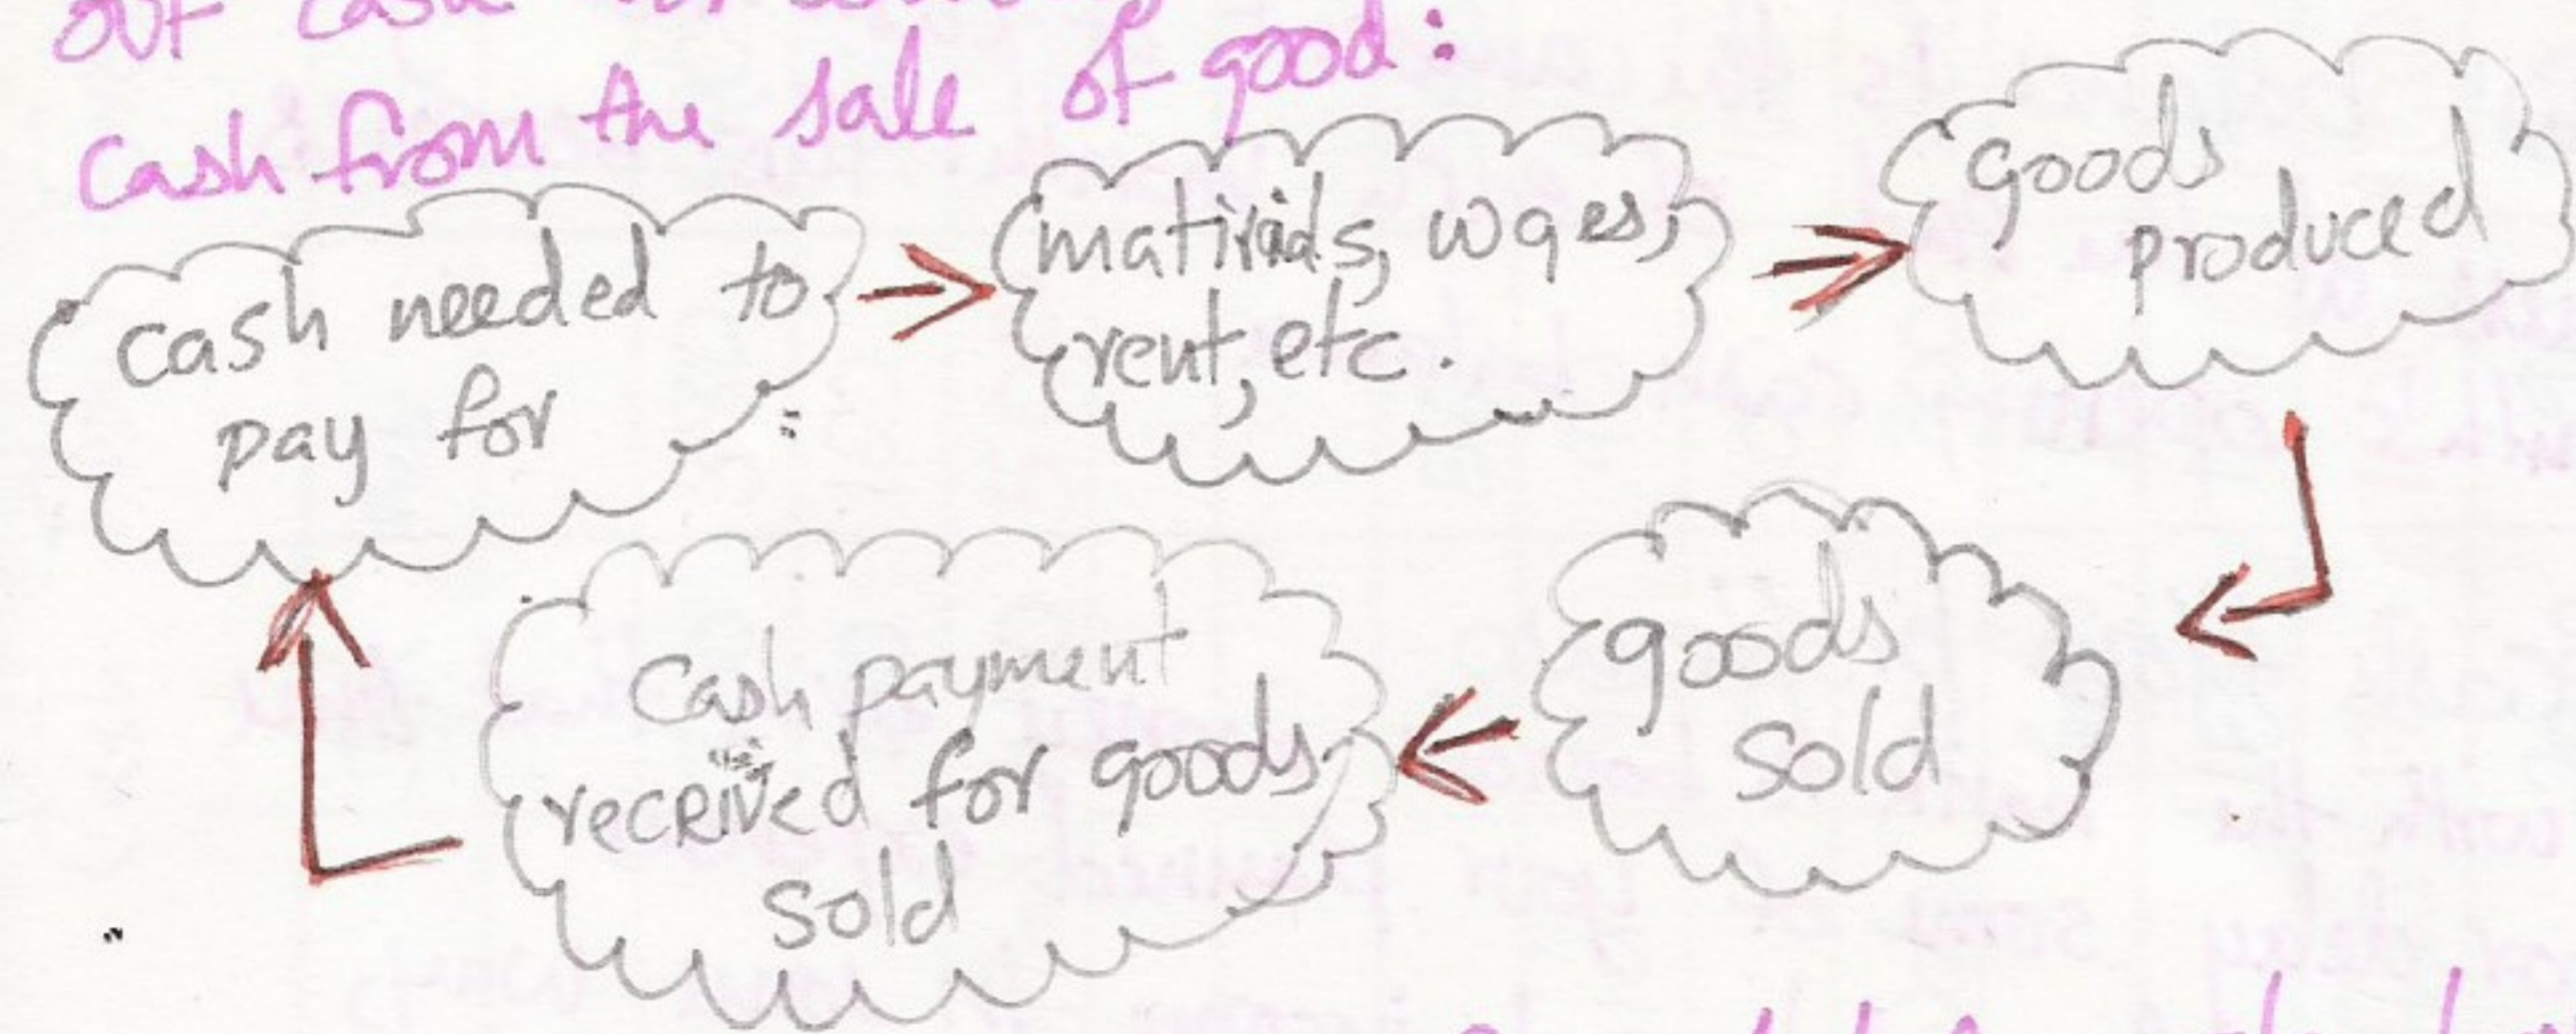 out cash
Cash from the sale of good:
cash needed to
pay for
matirials, wges,
rent, etc.
goods
produced
goods
sold
Cash payment
received for goods
sold